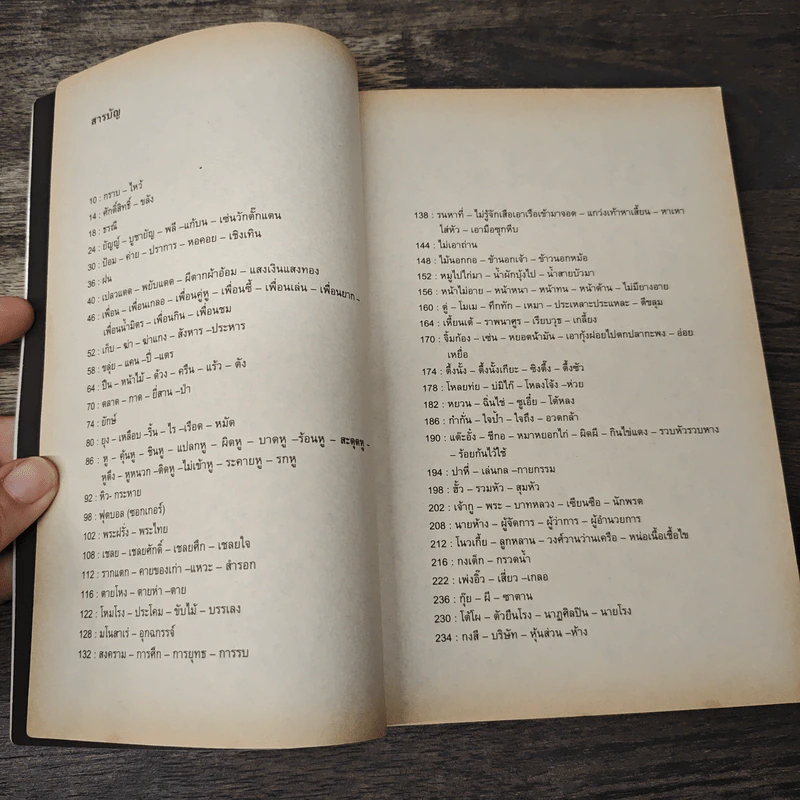 สารบัญ
10 : กราบ – ไหว้
14 : ศักดิ์สิทธิ์ – ขลัง
18 : ธรณี
24 : ยัญญ์ – บูชายัญ – พลี – แก้บน – เซ่นวักตั๊กแตน
30 : ป้อม – ค่าย – ปราการ – หอคอย – เชิงเทิน
36 : ฝน
40 : เปลวแดด – พยับแดด – ผีตากผ้าอ้อม – แสงเงินแสงทอง
46 : เพื่อน – เพื่อนเกลอ – เพื่อนคู่หู – เพื่อนซี้ – เพื่อนเล่น – เพื่อนยาก –
เพื่อนน้ำมิตร – เพื่อนกิน – เพื่อนชม
52 : เก็บ – ฆ่า – ฆ่าแกง – สังหาร – ประหาร
58 : ขลุ่ย – แคน – ปี่ – แตร
64 : ปืน – หน้าไม้ – ด้วง – ครืน – แร้ว – ดัง
70 : ตลาด – กาด – ยี่สาน – ป่า
74 : ยักษ์
80 : ยุง – เหลือบ – ริ้น – ไร – เรือด – หมัด
86 : หู – คุ้นหู – ชินหู – แปลกหู – ผิดหู – บาดหู – ร้อนหู – สะดุดหู –
หูดึง – หูหนวก – ติดหู – ไม่เข้าหู – ระคายหู – รกหู
92 : หิว – กระหาย
98 : ฟุตบอล (ซอกเกอร์)
102 : พระฝรั่ง – พระไทย
108 : เชลย – เชลยศักดิ์ – เชลยศึก – เชลยใจ
112 : รากแตก – คายของเก่า – แหวะ – สำรอก
116 : ตายโหง – ตายห่า – ตาย
122 : โหมโรง – ประโคม – ขับไม้ – บรรเลง
128 : มโนสาเร่ – อุกฉกรรจ์
132 : สงคราม – การศึก – การยุทธ – การรบ
138 : รนหาที่ – ไม่รู้จักเสือเอาเรือเข้ามาจอด – แกว่งเท้าหาเสี้ยน – หาเหา
ใส่หัว – เอามือซุกหีบ
144 : ไม่เอาถ่าน
148 : ไม้นอกกอ – ข้านอกเจ้า – ข้าวนอกหม้อ
152 : หมูไปไก่มา – น้ำผักบุ้งไป – น้ำสายบัวมา
156 : หน้าไม่อาย – หน้าหนา – หน้าทน – หน้าด้าน – ไม่มียางอาย
160 : ตู่ – โมเม – ทึกทัก – เหมา – ประเหลาะประแหละ – ตีขลุม
164 : เหี้ยนเต้ – ราพนาศูร – เรียบวุธ – เกลี้ยง
170 : จิ้มก้อง – เซ่น – หยอดน้ำมัน – เอากุ้งฝอยไปตกปลากะพง – อ่อย
เหยื่อ
174 : ตึ้งนั้ง – ตึ้งนั้งเกียะ – ซิงตึ๊ง – ตึ้งซัว
178 : โหลยท่ย – บ่มิไก๊ – โหลงโจ้ง – ห่วย
182 : หยวน – ฉิ่นไข่ – ซูเอี๋ย – โต้หลง
186 : กำกั่น – ใจป้ำ – ใจถึง – อวดกล้า
190 : แต๊ะอั๋ง – ชีกอ – หมาหยอกไก่ – ผิดผี – กินไข่แดง – รวบหัวรวบหาง
– ร้อยกันไว้ใช้
194 : ปาหี่ – เล่นกล – กายกรรม
198 : ฮั้ว – รวมหัว – สุมหัว
202 : เจ้ากู – พระ – บาทหลวง – เซียนซือ – นักพรต
208 : นายห้าง – ผู้จัดการ – ผู้ว่าการ – ผู้อำนวยการ
212 : โนวเกี้ย – ลูกหลาน – วงศ์วานว่านเครือ – หน่อเนื้อเชื้อไข
216 : กงเต็ก – กรวดน้ำ
222 : เพ่งอิ๊ว – เสี่ยว – เกลอ
236 : กุ๊ย – ผี – ซาตาน
230 : โต้โผ – ตัวยืนโรง – นาฏศิลปิน – นายโรง
234 : กงสี – บริษัท – หุ้นส่วน – ห้าง